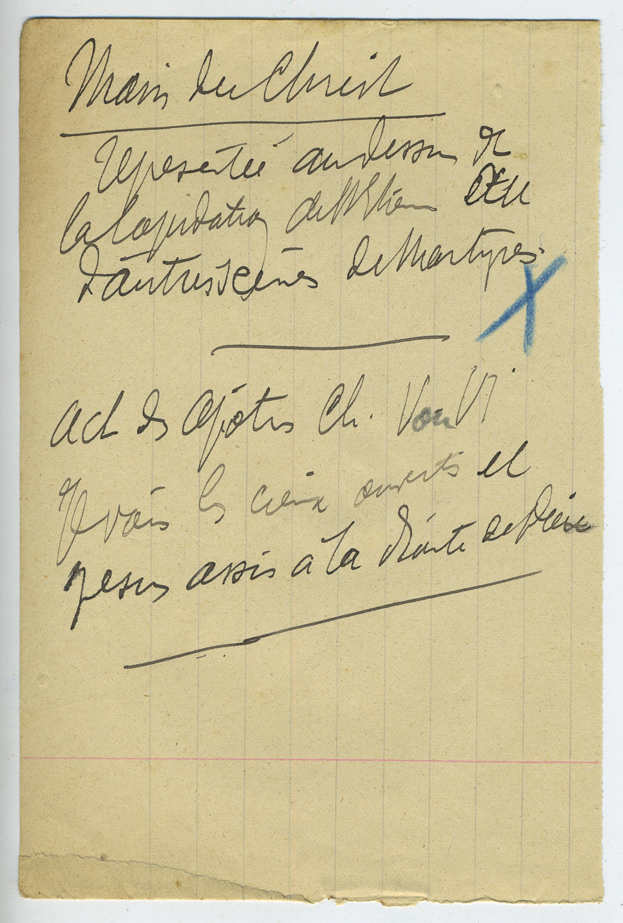 Main du Christ
représentée au dessus de
la lapidation de St Etienne et
d'autres scènes de Martyres.
Act des Apôtres Ch. V ou VI
Je vois les cieux ouverts et
Jesus assis à la droite de Dieu